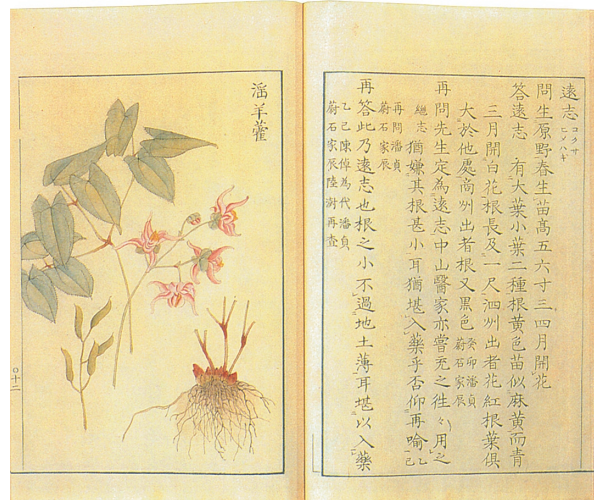 遠志 コクサ ヒメハギ
問生原野春生苗高五六寸三四月開花
答遠志 有大葉小葉二種根黄色苗似麻黄而青
三月開白花根長及一尺泗州出者花紅根葉俱
大於他處商州出者根又黒色 癸卯潘貞
蔚石家辰
再問先生定為遠志中山醫家亦嘗充之徃々用之
繼志 猶嫌其根甚小耳猶堪入藥乎否仰再喻 乙巳
再問潘貞
蔚石家辰
再答此乃遠志也根之小不過地土薄耳堪以入藥
乙巳陳倬為代潘貞
蔚石家辰陸澍再查
淫羊藿